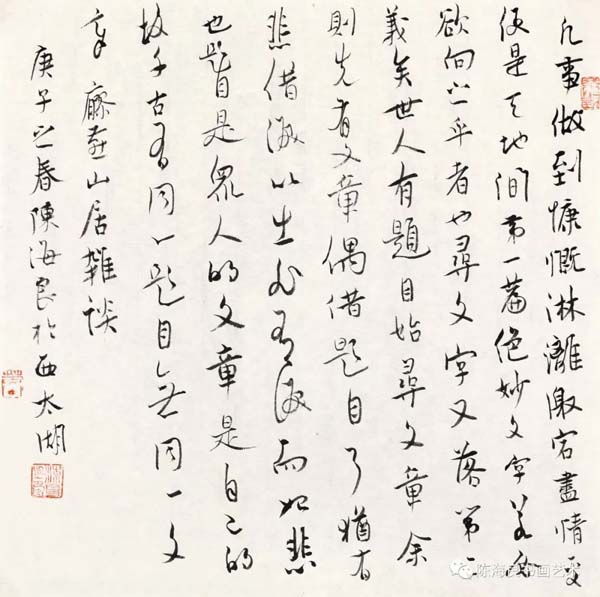 凡事做到慷慨淋灕激宕盡情處
便是天地間第一篇絕妙文字若必
欲向之乎者也尋文字又落第二
義矣世人有題目始尋文章余
則先有文章偶借題目耳猶有
悲借淚以出非有淚而始悲
也題目是眾人的文章是自己的
故千古有同一題目無同一文
章 廖燕山居雜談
庚子之春陳海良於西太湖
陈海良书画艺术